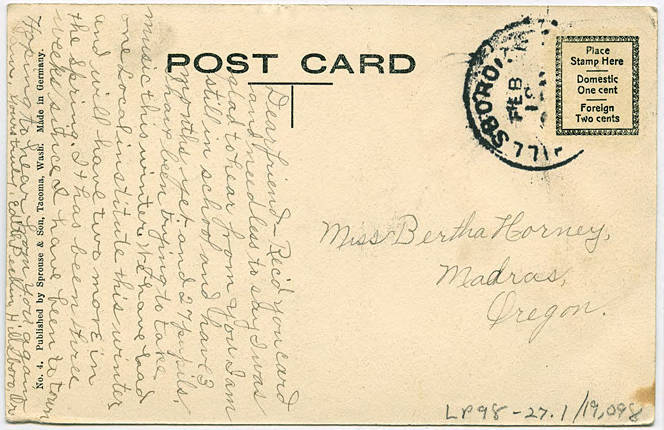 POST CARD
Place
Stamp Here
Domestic
One cent
Foreign
Two cents
HILLSBORO
FEB
Miss Bertha Horney,
Madras,
Oregon.
Dear friend - Rec'd you card
and needless to say I was
glad to hear from you. I am
still in school and have 3
months yet and 27 pupils.
I have been trying to take
music this winter. We have had
one local institute this winter
and will have two more in
the Spring. It has been three
weeks since I have been to town
No. 4. Published by Sprouse & Son, Tacoma, Wash. Made in Germany.
Hoping to hear from you again
Hillsboro, Or
LP98-27.1/19,098